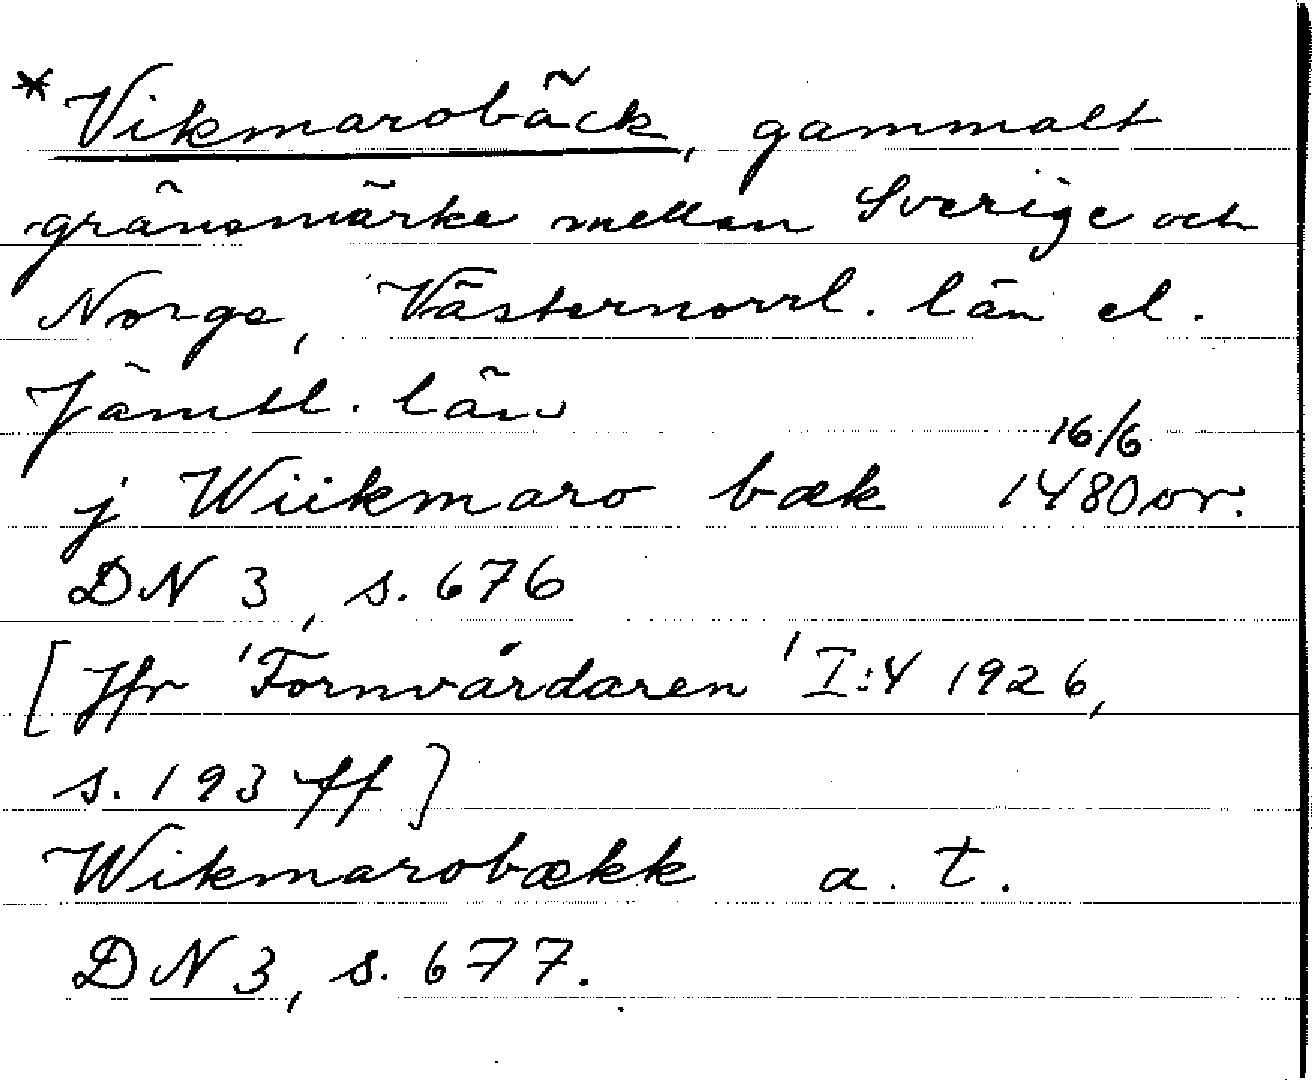 * Vikmarobäck, gammalt
gränsmärke mellan Sverige och
Norge, Västernorrl. län el.
Jämtl. län
16/6
j Wiikmaro bæk 1480 or.
DN 3, s. 676
[Jfr 'Fornvårdaren' I:4 1926,
s. 193 ff]
Wikmarobækk a. t.
DN 3, s. 677.